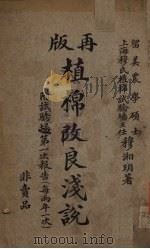 再版
留美農學碩士
上海穆氏植棉試驗場主任 穆湘玥著
植棉改良淺說
附試驗場第一次報告(每兩年一次)
非賣品